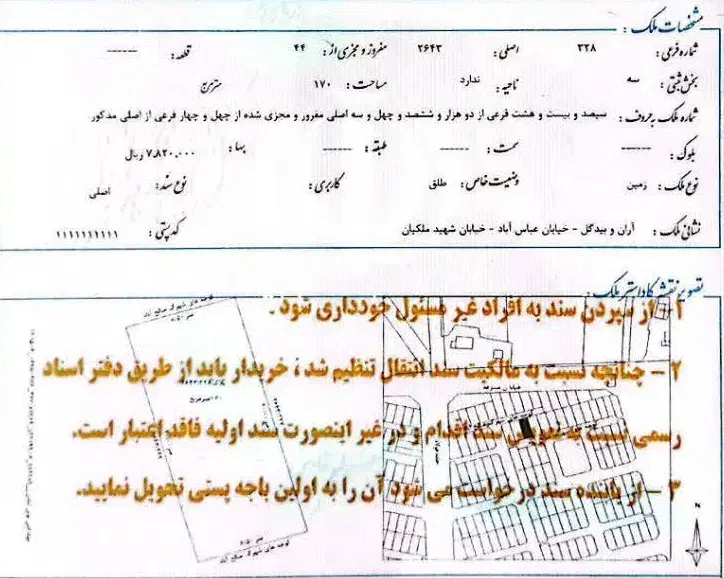 مشخصات ملک :
شماره فرعی : ۳۲۸ اصلی : ۲۶۴۳ مفروز و مجزی از : ۴۴ قطعه : ------
بخش ثبتی : سه ناحیه : ندارد مساحت : ۱۷۰ مترمربع
شماره ملک به حروف : سیصد و بیست و هشت فرعی از دو هزار و ششصد و چهل و سه اصلی مفروز و مجزی شده از چهل و چهار فرعی از اصلی مذکور
بلوک : ------ سمت : ------ طبقه : ------ بها : ۷,۸۲۰,۰۰۰ ریال
نوع ملک : زمین وضعیت خاص : طلق کاربری : نوع سند : اصلی
نشانی ملک : آران و بیدگل - خیابان عباس آباد - خیابان شهید ملکیان کدپستی : ۱۱۱۱۱۱۱۱۱۱
تصویر نقشه کاداستر ملک :
۱- از سپردن سند به افراد غیر مسئول خودداری شود .
۲ - چنانچه نسبت به مالکیت سند انتقال تنظیم شد ، خریدار باید از طریق دفتر اسناد
رسمی نسبت به تعویض سند اقدام و در غیر اینصورت سند اولیه فاقد اعتبار است.
۳ - از یابنده سند درخواست می شود آن را به اولین باجه پستی تحویل نمایید.
N